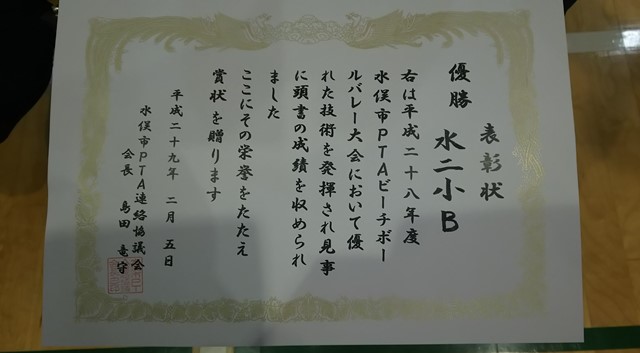 表彰状
優勝
水二小B
右は平成二十八年度
水俣市PTAビーチボー
ルバレー大会において優
れた技術を発揮され見事
に頭書の成績を収められ
ました
ここにその栄誉をたたえ
賞状を贈ります
平成二十九年 二月 五日
水俣市PTA連絡協議会
会長 島田 竜守